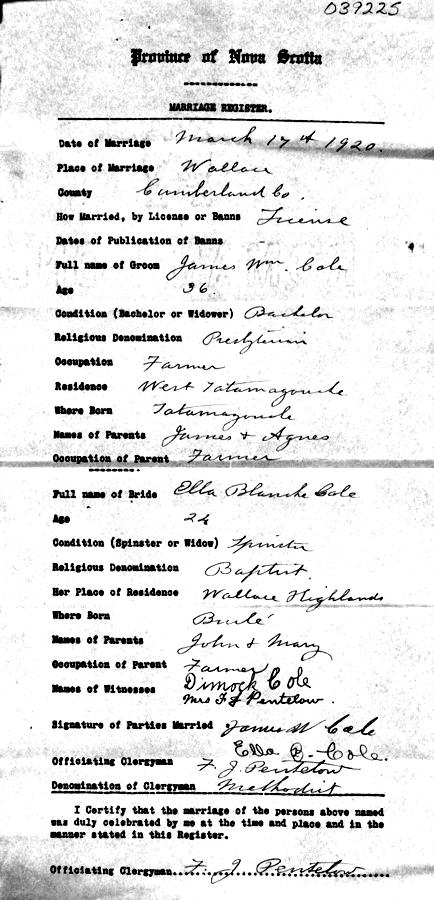 039225
Province of Nova Scotia
MARRIAGE REGISTER.
Date of Marriage March 17th 1920.
Place of Marriage Wallace
County Cumberland Co.
How Married, by License or Banns License
Dates of Publication of Banns
Full name of Groom James Wm. Cole
Age 36
Condition (Bachelor or Widower) Bachelor
Religious Denomination Presbyterian
Occupation Farmer
Residence West Tatamagouche
Where Born Tatamagouche
Names of Parents James & Agnes
Occupation of Parent Farmer
Full name of Bride Ella Blanche Cole
Age 24
Condition (Spinster or Widow) Spinster
Religious Denomination Baptist.
Her Place of Residence Wallace Highlands
Where Born Brulé
Names of Parents John & Mary
Occupation of Parent Farmer
Names of Witnesses Dimock Cole
Mrs F J Pentelow.
Signature of Parties Married James W Cole
Ella B. Cole.
Officiating Clergyman F. J. Pentelow
Denomination of Clergyman Methodist
I Certify that the marriage of the persons above named
was duly celebrated by me at the time and place and in the
manner stated in this Register.
Officiating Clergyman....F. J. Pentelow....